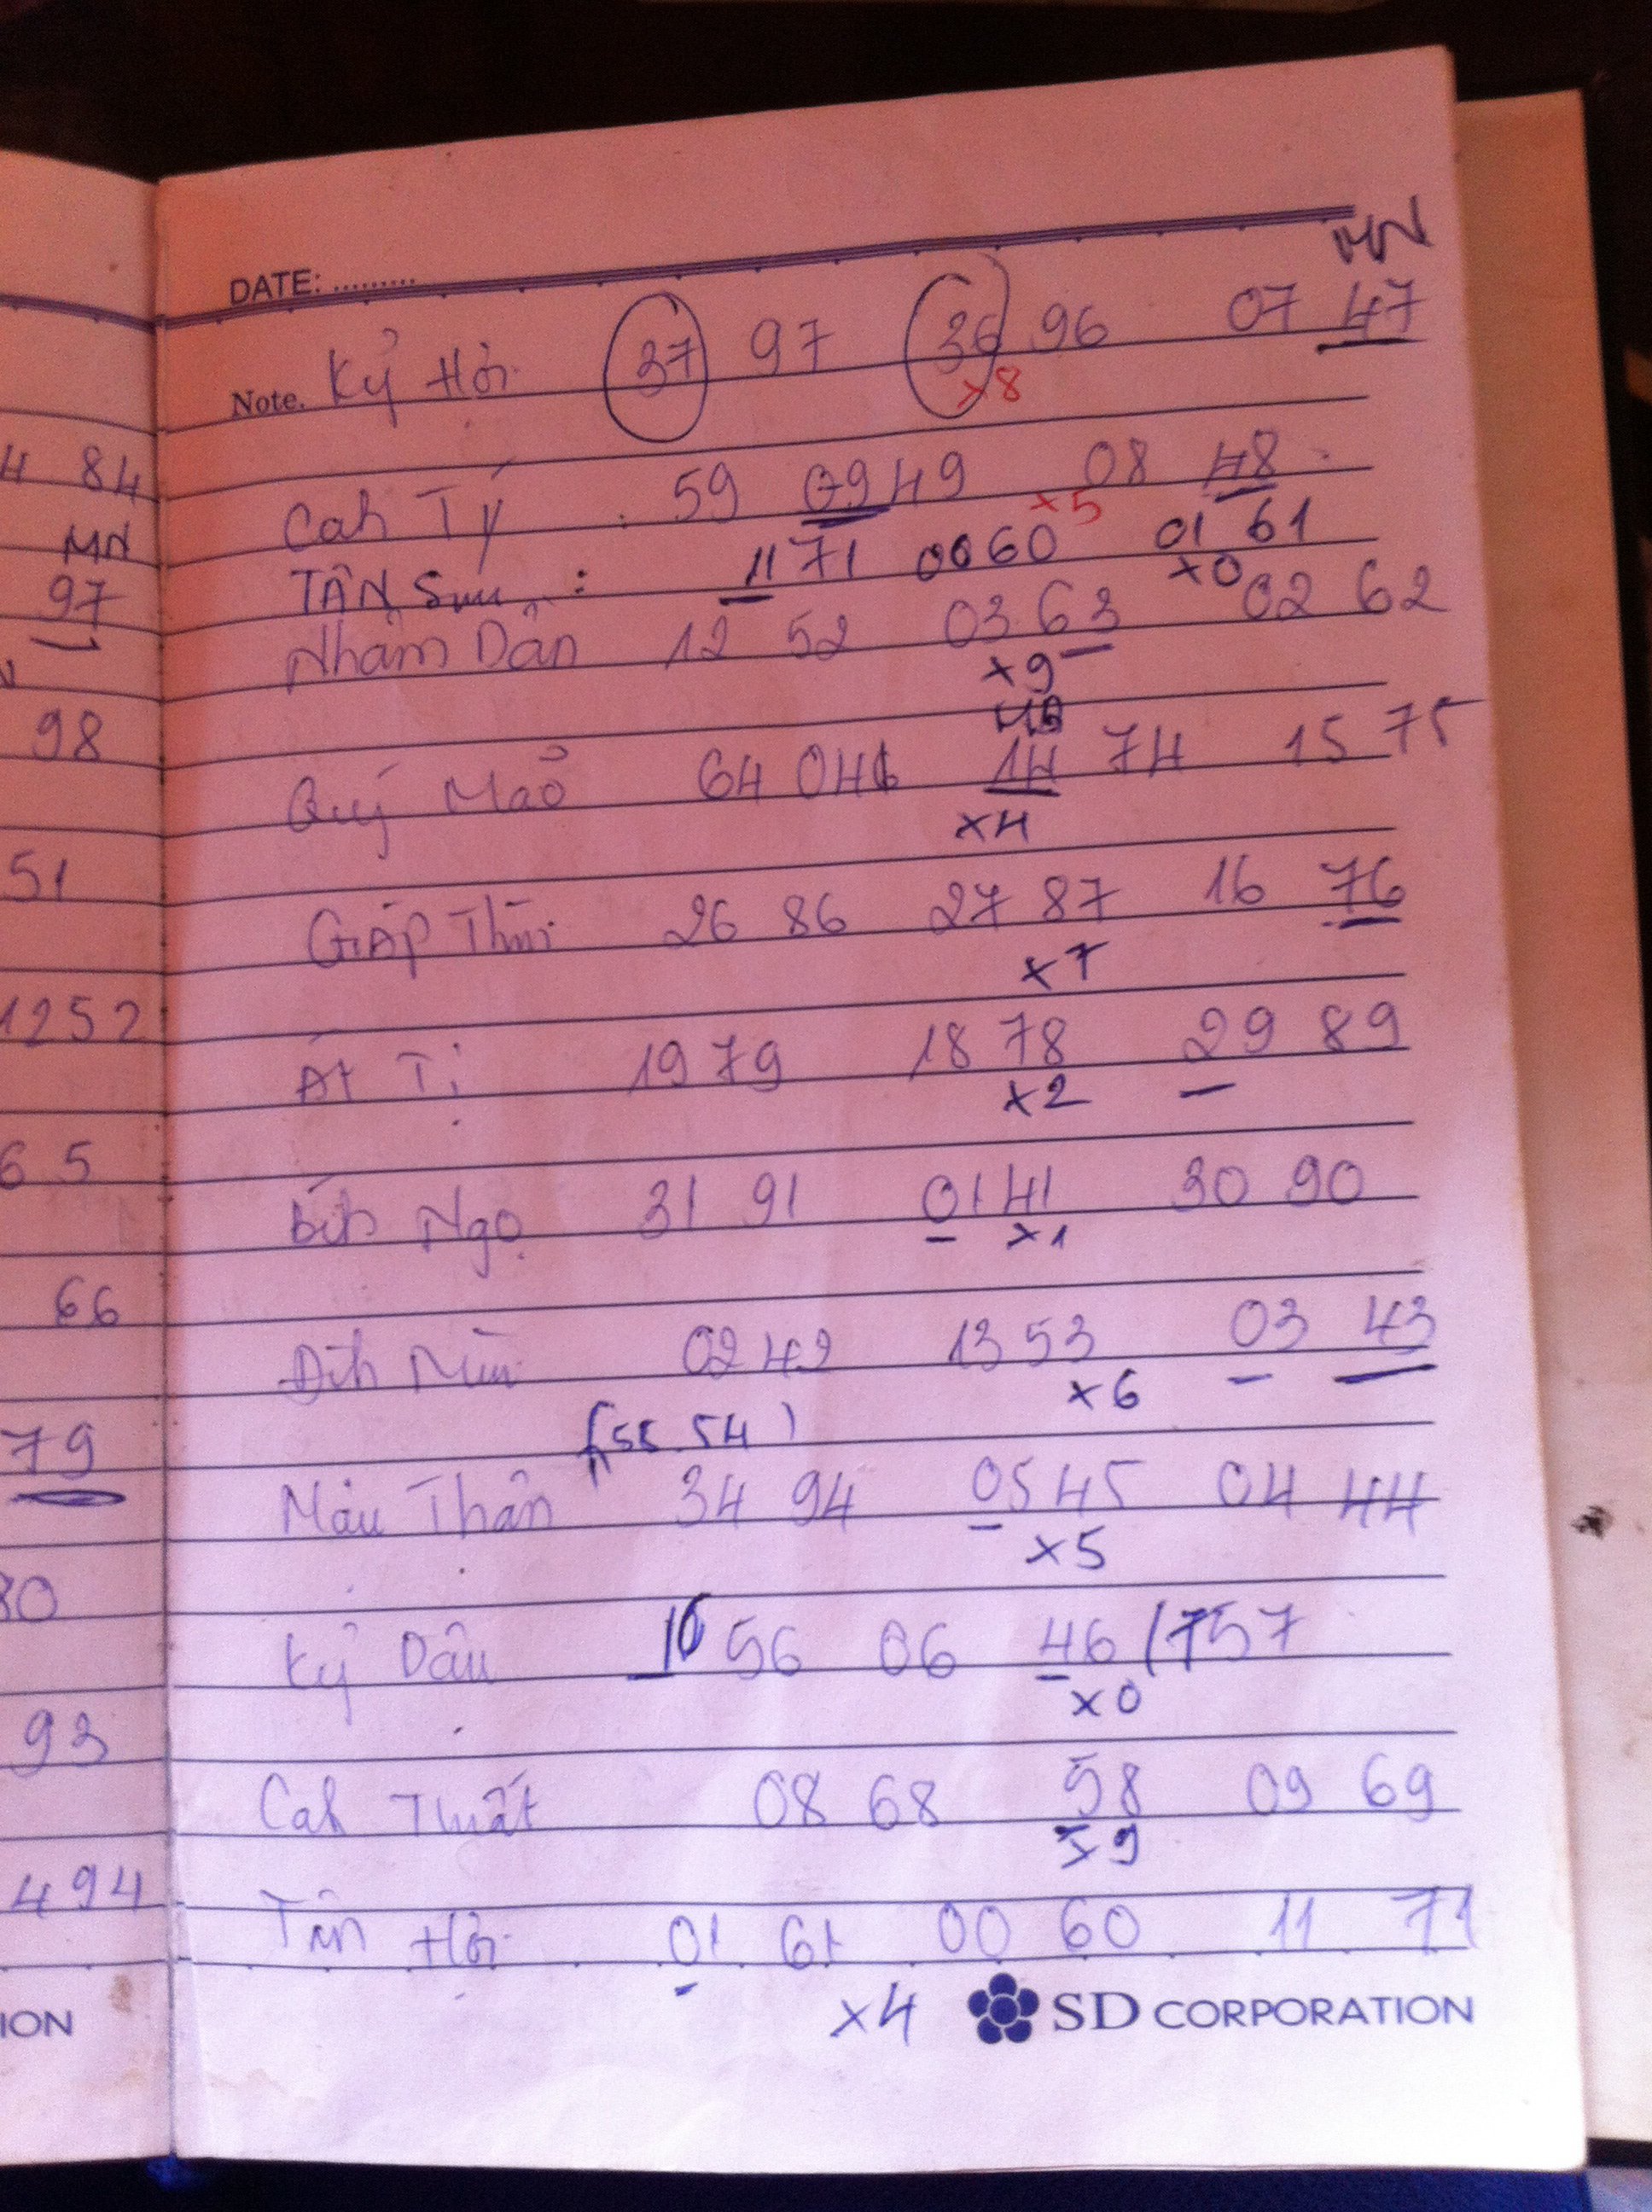 4 84
MN
97
98
51
1252
65
66
79
80
93
494
ION
DATE: .........
MN
Note. Kỷ Hợi 37 97 36 96 07 47
x8
Cah Tý : 59 09 49 08 48
x5
TÂN Sửu : 11 71 00 60 01 61
x0
Nhâm Dần 12 52 03 63 02 62
x9
Quý Mão 64 04 14 74 15 75
x4
GIÁP Thìn 26 86 27 87 16 76
x7
Ất Tị 19 79 18 78 29 89
x2
Bíh Ngọ 31 91 01 41 30 90
x1
Đih Mùi 02 42 13 53 03 43
x6
(55.54)
Mậu Thân 34 94 05 45 04 44
x5
Kỷ Dậu 16 56 06 46 57
x0
Cah Tuất 08 68 58 09 69
x9
Tân Hợi 01 61 00 60 11 71
x4
SD CORPORATION